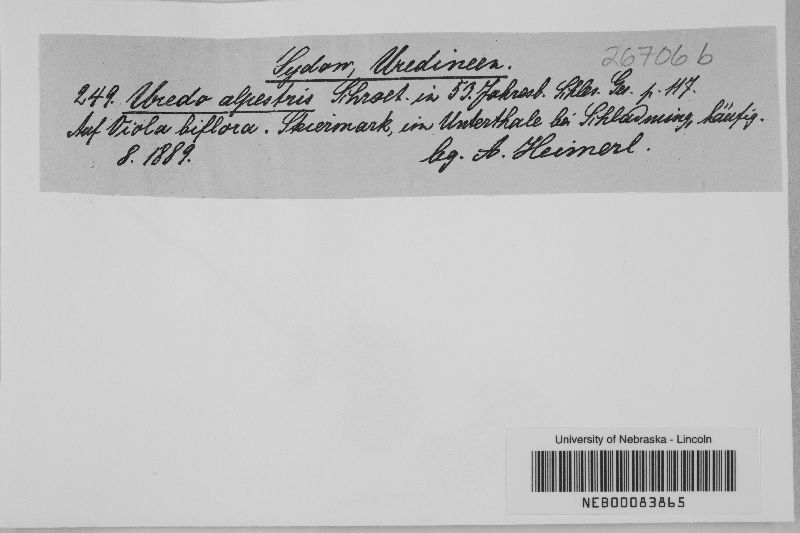 Sydow, Uredineen.
267066
249. Uredo alpestris Schroet. in 53. Jahresb. Schles. Ges. p. 117.
Auf Viola biflora. Steiermark, im Unterthale bei Schladming, häufig.
8. 1889.
leg. A. Heimerl.
University of Nebraska - Lincoln
NEB00083865